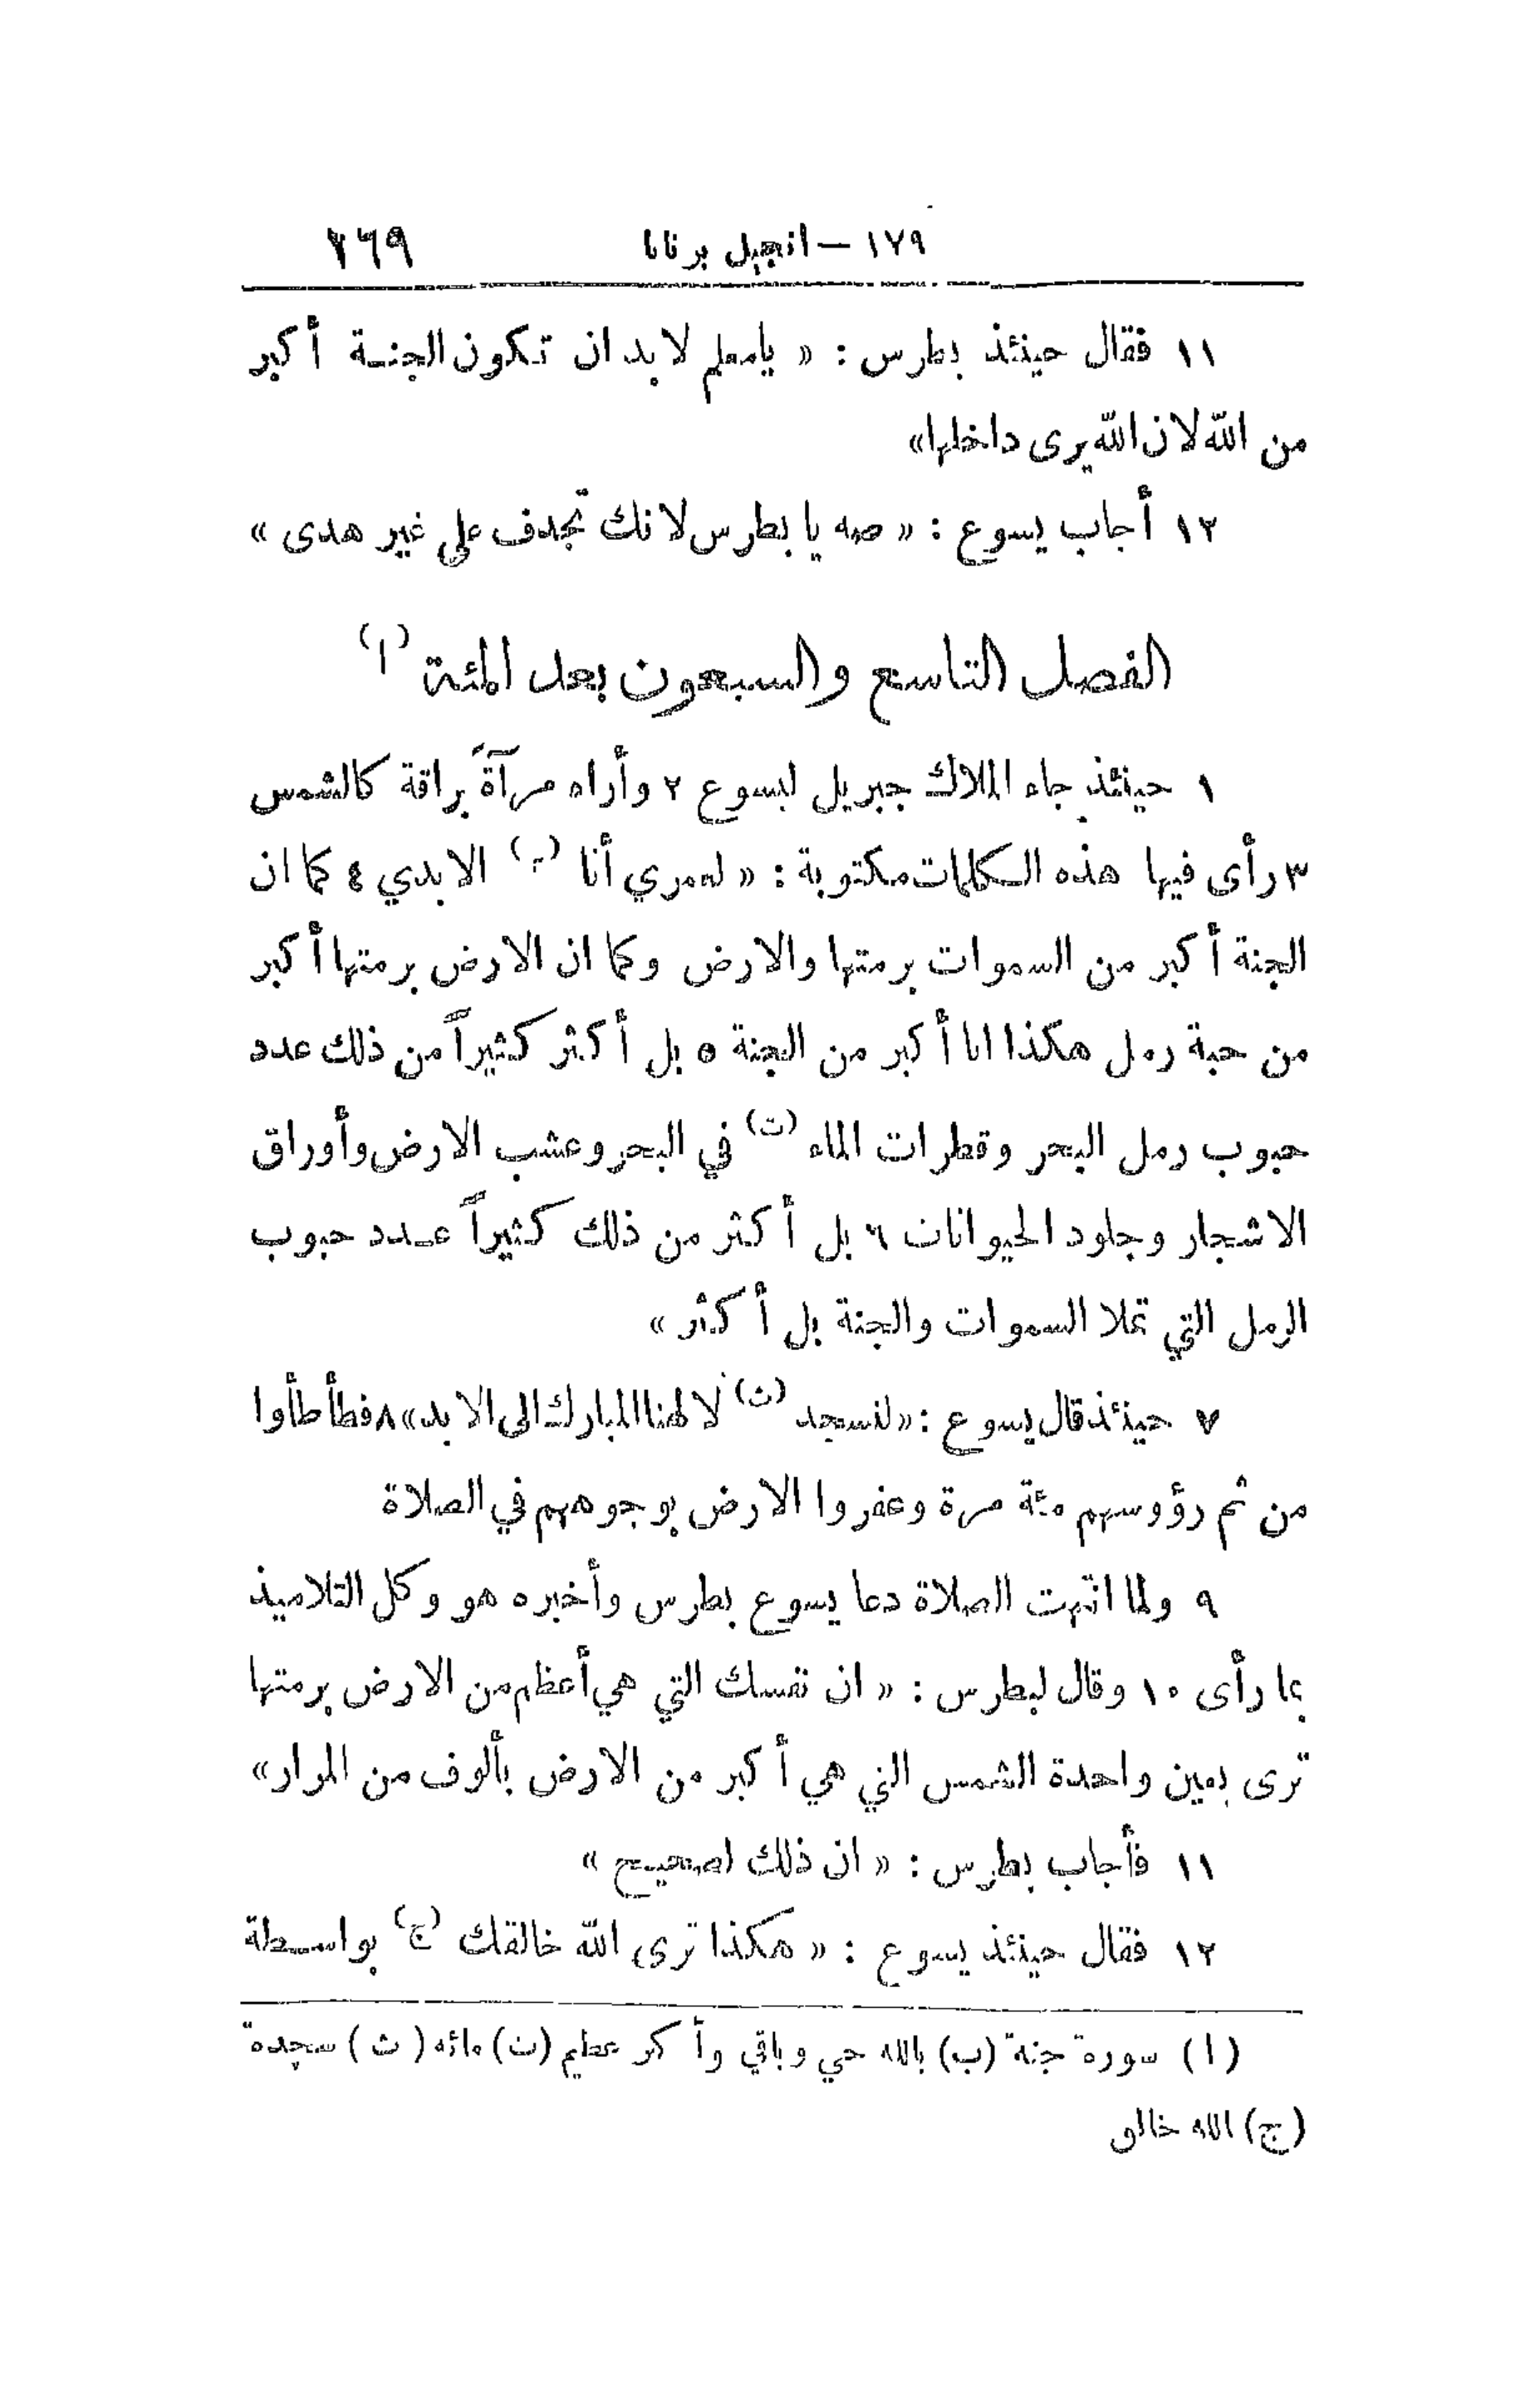 ١٧٩ — انجيل برنابا ٢٦٩
١١ فقال حينئذ بطرس : « يامعلم لا بد ان تكون الجنة أكبر
من الله لان الله يرى داخلها»
١٢ أجاب يسوع : « صه يا بطرس لانك تجدف على غير هدى »
الفصل التاسع والسبعون بعد المئة (ا)
١ حينئذ جاء الملاك جبريل ليسوع ٢ وأراه مرآةً براقة كالشمس
٣ رأى فيها هذه الكلمات مكتوبة : « لعمري أنا (ب) الابدي ٤ كما ان
الجنة أكبر من السموات برمتها والارض وكما ان الارض برمتها أكبر
من حبة رمل هكذا انا أكبر من الجنة ٥ بل أكثر كثيراً من ذلك عدد
حبوب رمل البحر وقطرات الماء (ت) في البحر وعشب الارض وأوراق
الاشجار وجلود الحيوانات ٦ بل أكثر من ذلك كثيراً عدد حبوب
الرمل التي تملا السموات والجنة بل أكثر »
٧ حينئذ قال يسوع : «لنسجد (ث) لالهنا المبارك الى الابد» ٨ فطأطأوا
من ثم رؤوسهم مئة مرة وعفروا الارض بوجوههم في الصلاة
٩ ولما انتهت الصلاة دعا يسوع بطرس وأخبره هو وكل التلاميذ
بما رأى ١٠ وقال لبطرس : « ان نفسك التي هي أعظم من الارض برمتها
ترى بعين واحدة الشمس التي هي أكبر من الارض بألوف من المرار»
١١ فأجاب بطرس : « ان ذلك لصحيح »
١٢ فقال حينئذ يسوع : « هكذا ترى الله خالقك (ج) بواسطة
(ا) سورة جنة (ب) بالله حي وباقي وأكبر عظيم (ت) مائه (ث) سجدة
(ج) الله خالق